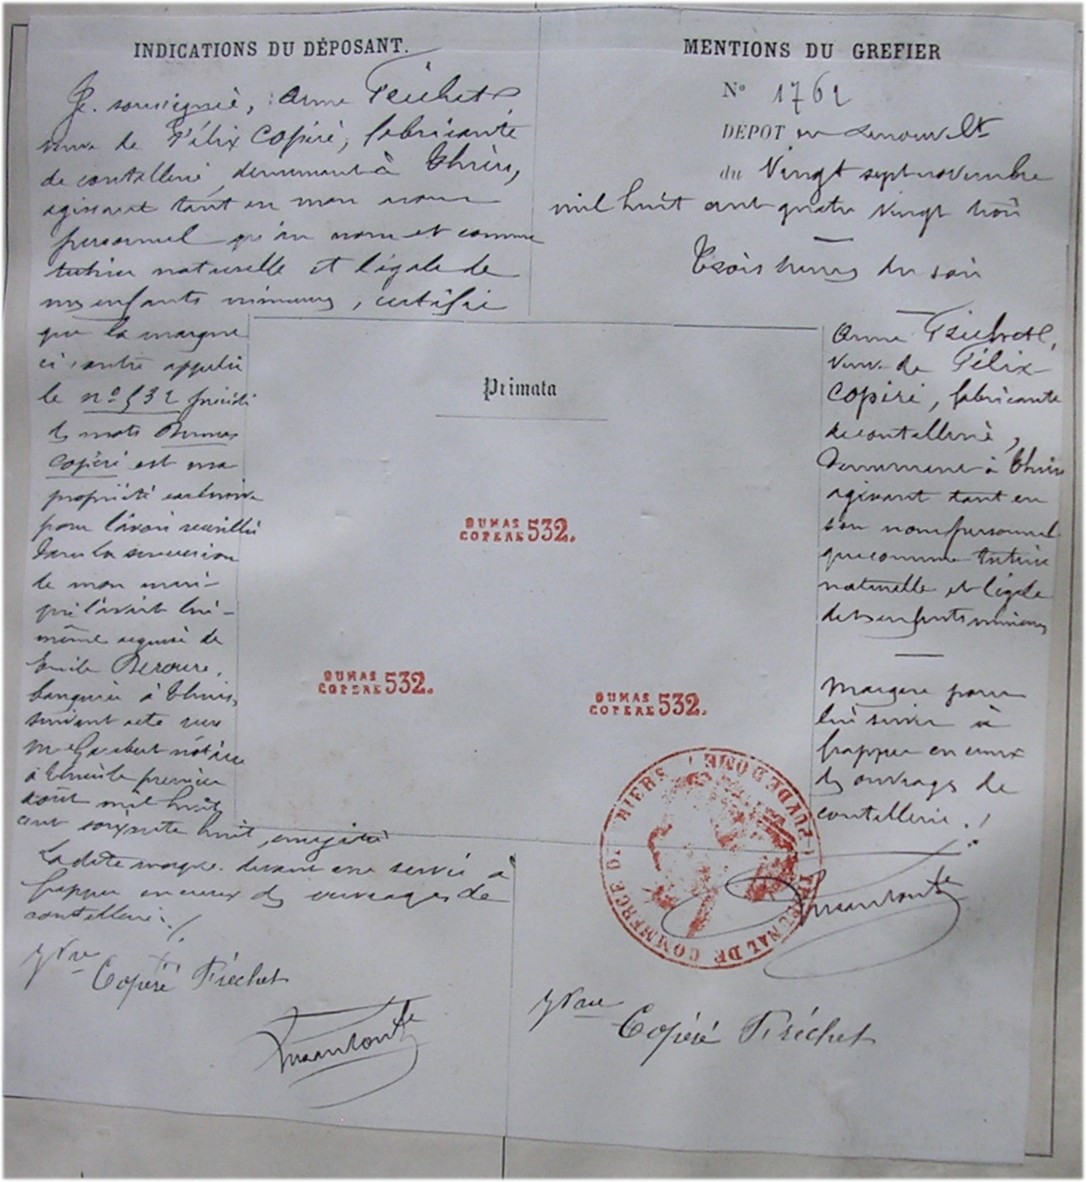 INDICATIONS DU DÉPOSANT.
Je soussignée, Anne Fréchet
veuve de Félix Copéré, fabricante
de coutellerie, demeurant à Thiers,
agissant tant en mon nom
personnel qu'au nom et comme
tutrice naturelle et légale de
mes enfants mineurs, certifie
que la marque
ci contre appelée
le n° 532 précédé
des mots Dumas
Copéré est ma
propriété exclusive
pour l'avoir recueillie
dans la succession
de mon mari
qui l'avait lui-
même acquise de
Emile
banquier à Thiers,
suivant acte reçu
Me notaire
à Thiers le premier
août mil huit
cent soixante huit, enregistré
Ladite marque devant me servir à
frapper en creux des ouvrages de
coutellerie. /
Vve Copéré Fréchet
MENTIONS DU GREFIER
N° 1762
DÉPOT en renouvelt
du Vingt sept novembre
mil huit cent quatre vingt trois
Trois heures du soir
Anne Fréchet,
veuve de Félix
Copéré, fabricante
de coutellerie,
demeurant à Thiers
agissant tant en
son nom personnel
que comme tutrice
naturelle et légale
de ses enfants mineurs
Marque pour
lui servir à
frapper en creux
des ouvrages de
coutellerie. /
Vve
Copéré Fréchet
Primata
DUMAS
COPERE 532.
DUMAS
COPERE 532.
DUMAS
COPERE 532.
TRIBUNAL DE COMMERCE DE THIERS (PUY DE DOME)